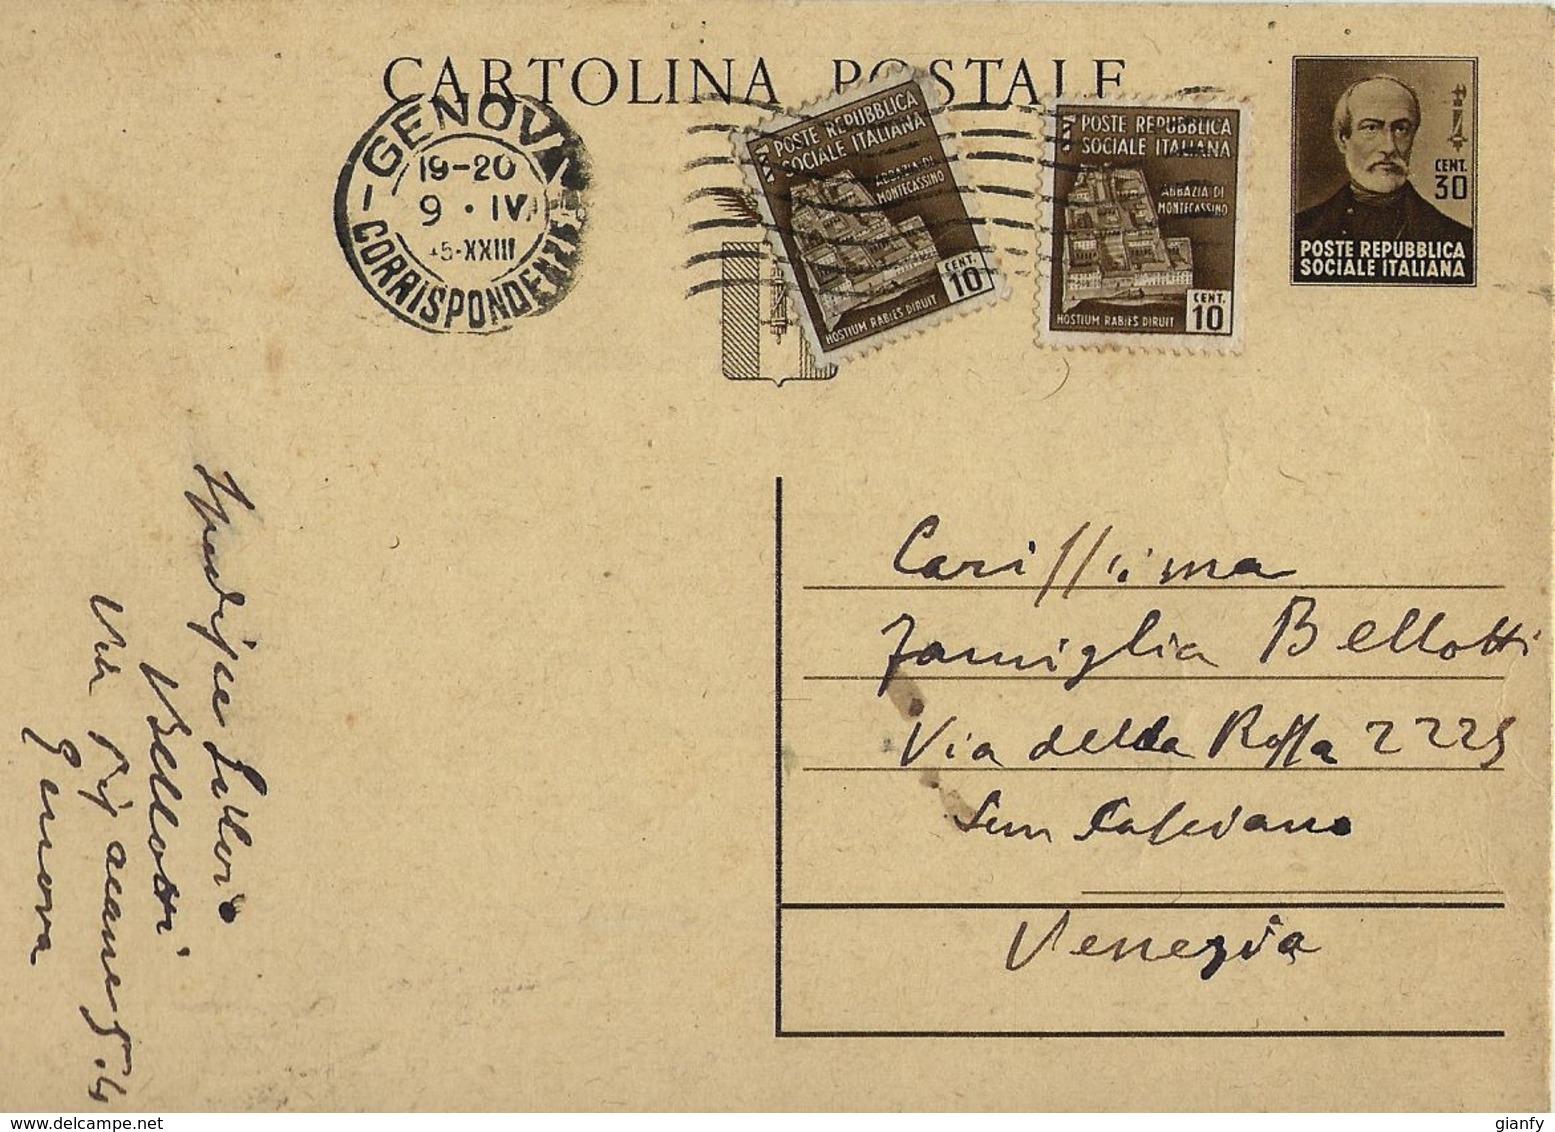 CARTOLINA POSTALE
GENOVA
19-20
9 · IV
45-XXIII
CORRISPONDENZE
POSTE REPUBBLICA
SOCIALE ITALIANA
ABBAZIA DI
MONTECASSINO
CENT.
10
HOSTIUM RABIES DIRUIT
POSTE REPUBBLICA
SOCIALE ITALIANA
ABBAZIA DI
MONTECASSINO
CENT.
10
HOSTIUM RABIES DIRUIT
CENT.
30
POSTE REPUBBLICA
SOCIALE ITALIANA
Carissima
Famiglia Bellotti
Via della 2225
San
Venezia
Bellotti
Via 5.4
Genova
gianfy